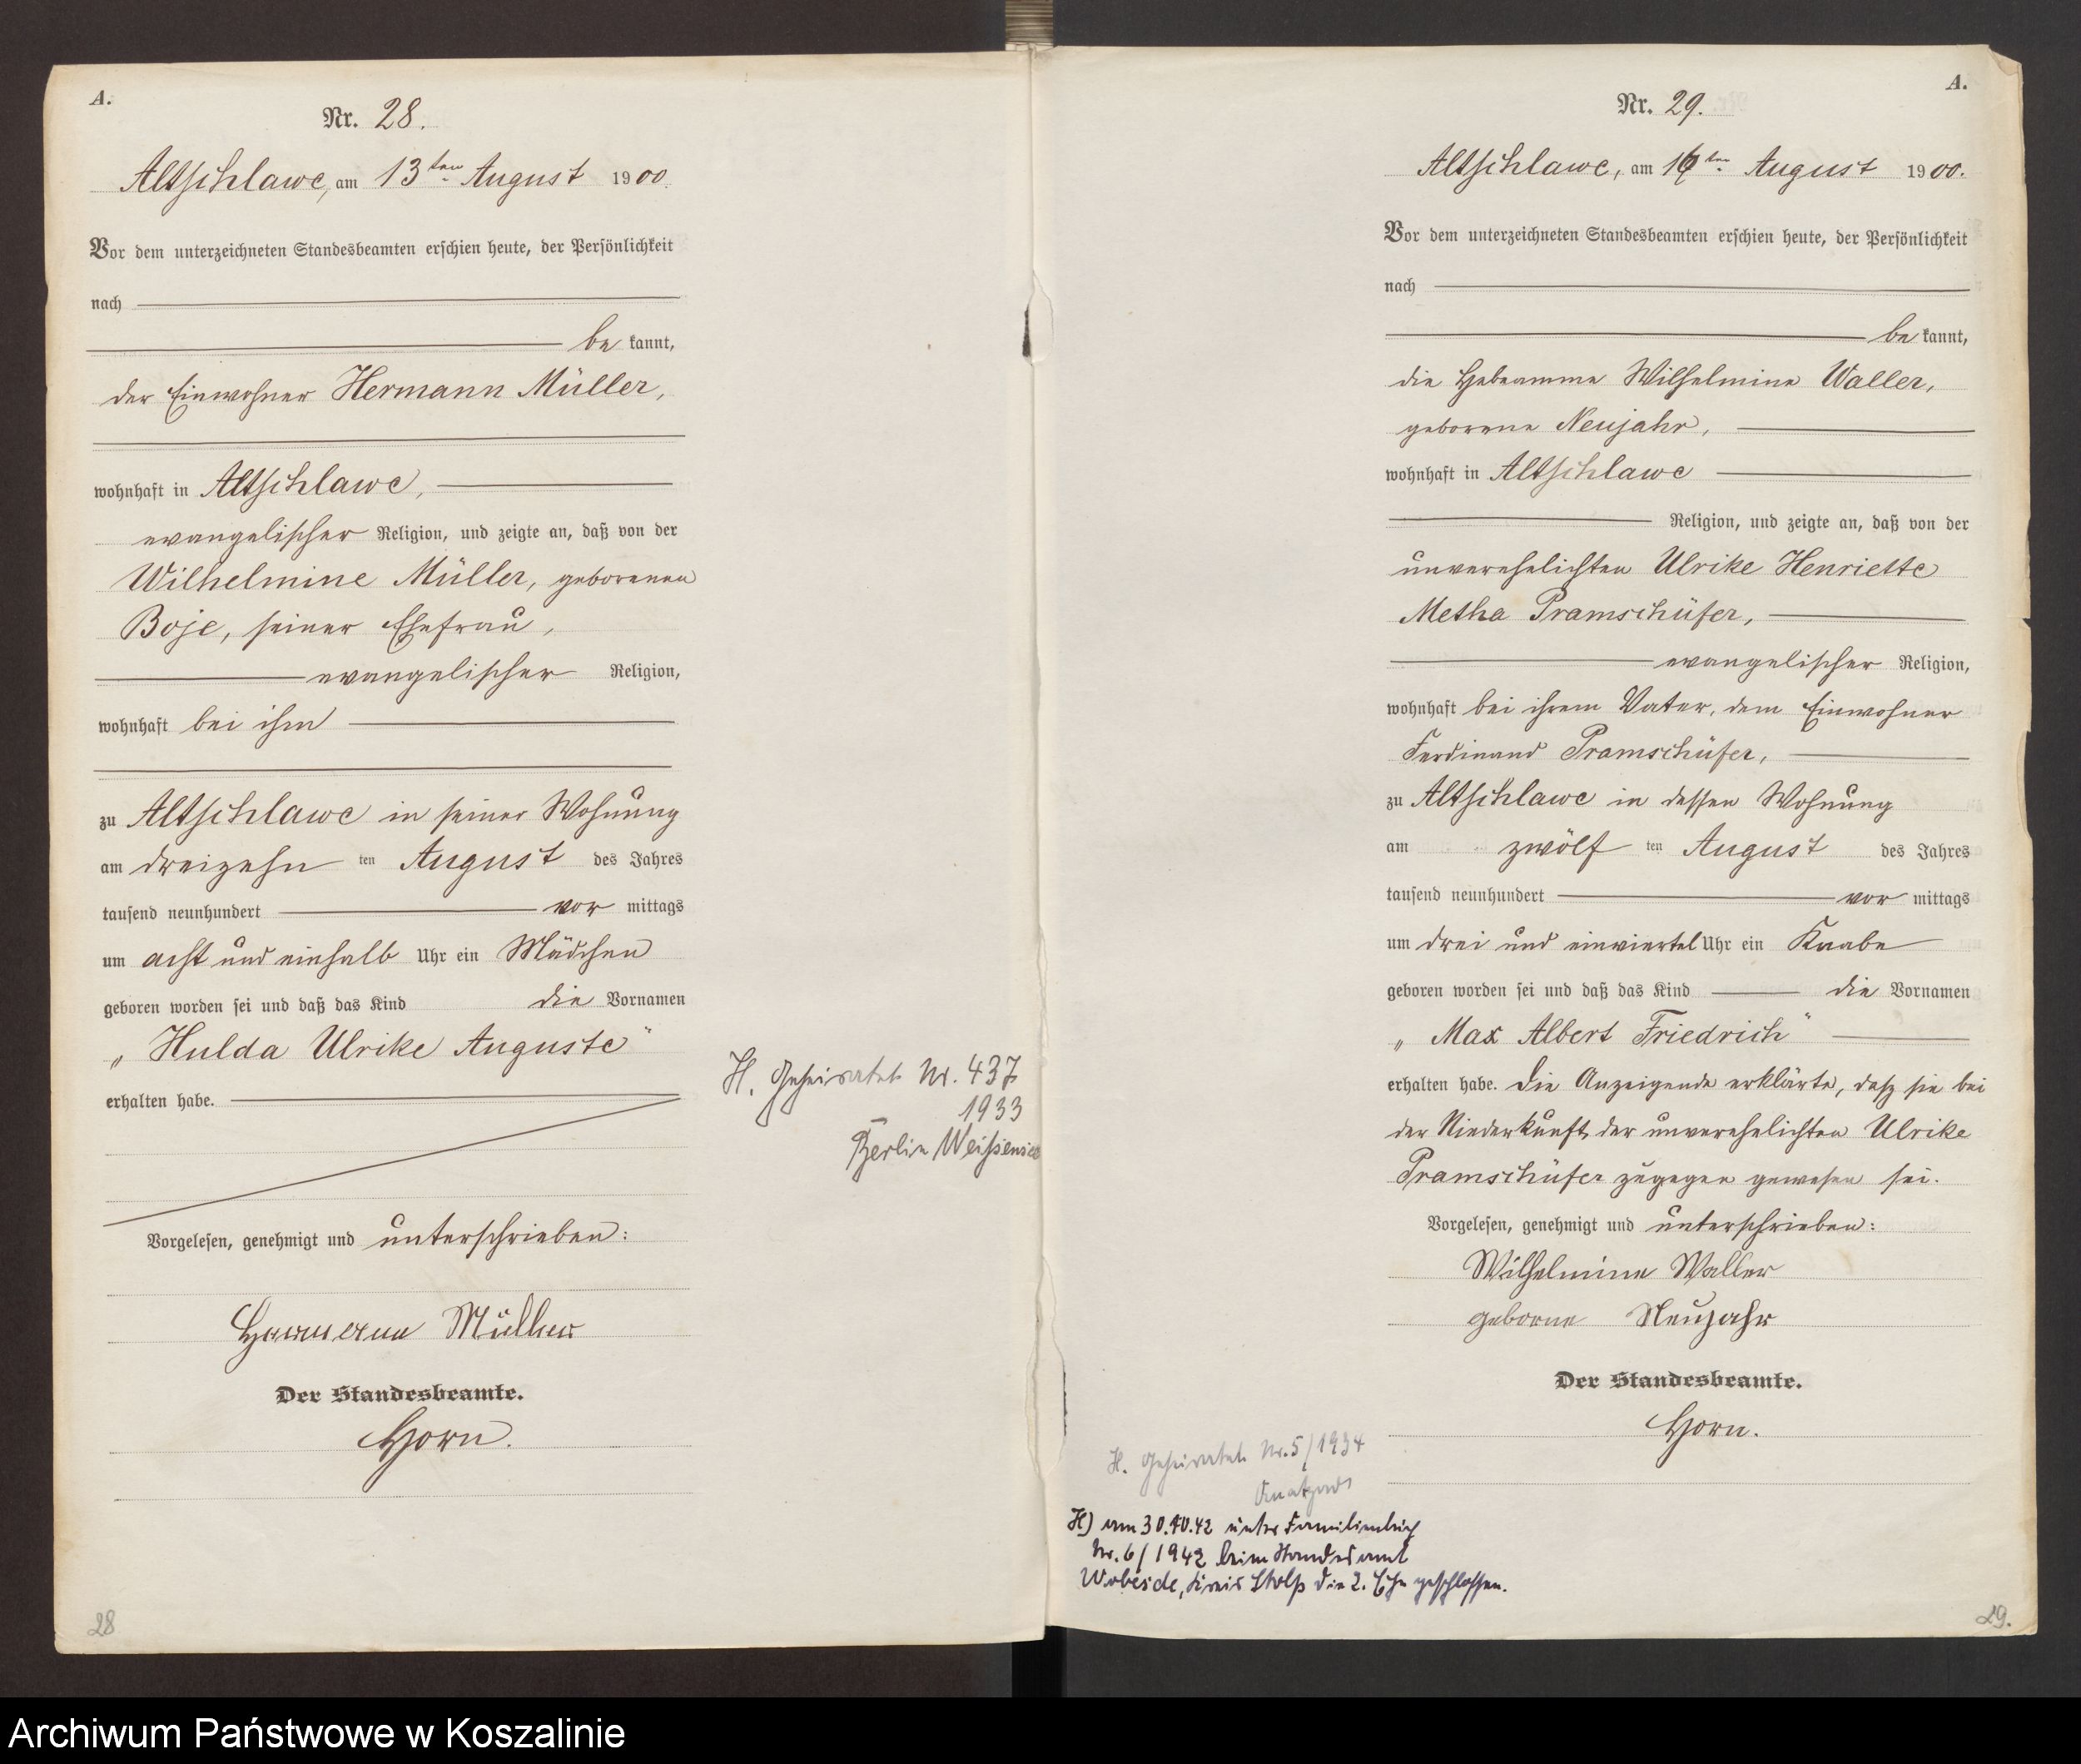 A.
Nr. 28.
Altschlawe, am 13ten August 1900.
Vor dem unterzeichneten Standesbeamten erschien heute, der Persönlichkeit
nach
bekannt,
der Einwohner Hermann Müller,
wohnhaft in Altschlawe,
evangelischer Religion, und zeigte an, daß von der
Wilhelmine Müller, geborenen
Boje, seiner Ehefrau,
evangelischer Religion,
wohnhaft bei ihm
zu Altschlawe in seiner Wohnung
am dreizehn ten August des Jahres
tausend neunhundert vor mittags
um acht und einhalb Uhr ein Mädchen
geboren worden sei und daß das Kind die Vornamen
„Hulda Ulrike Auguste“
erhalten habe.
Vorgelesen, genehmigt und unterschrieben:
Hermann Müller
Der Standesbeamte.
Horn.
H. Geheiratet Nr. 437
1933
Berlin Weißensee
28
A.
Nr. 29.
Altschlawe, am ten August 1900.
Vor dem unterzeichneten Standesbeamten erschien heute, der Persönlichkeit
nach
bekannt,
die Hebeamme Wilhelmine Waller,
geborene Neujahr,
wohnhaft in Altschlawe
Religion, und zeigte an, daß von der
unverehelichten Ulrike Henriette
Metha Pramschüfer,
evangelischer Religion,
wohnhaft bei ihrem Vater, dem Einwohner
Ferdinand Pramschüfer,
zu Altschlawe in dessen Wohnung
am zwölf ten August des Jahres
tausend neunhundert vor mittags
um drei und einviertel Uhr ein Knabe
geboren worden sei und daß das Kind die Vornamen
„Max Albert Friedrich“
erhalten habe. Die Anzeigende erklärte, daß sie bei
der Niederkunft der unverehelichten Ulrike
Pramschüfer zugegen gewesen sei.
Vorgelesen, genehmigt und unterschrieben:
Wilhelmine Waller
geborne Neujahr
Der Standesbeamte.
Horn.
H. Geheiratet Nr. 5/1934
H) am 30.10.42 unter Familienbuch
Nr. 6/1942 beim Standesamt
Wobesde, Kreis Stolp die 2. Ehe geschlossen.
29.
Archiwum Państwowe w Koszalinie